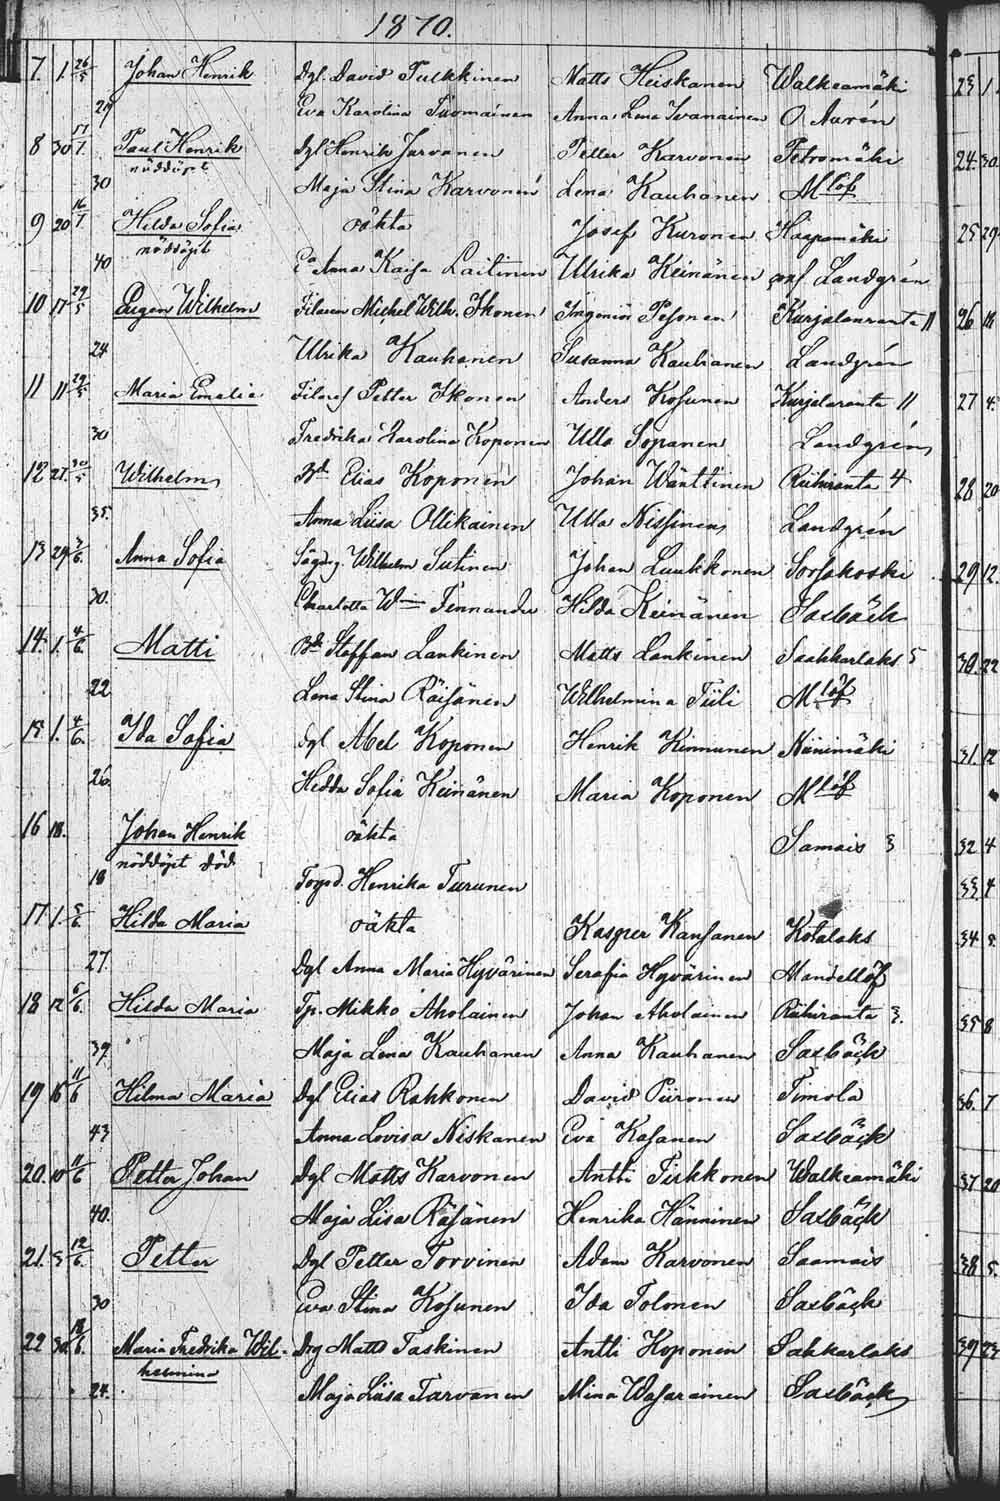 1870.
7. 1. 26/5 Johan Henrik Dgl. David Pulkkinen Matts Heiskanen Walkeamäki
29 Eva Karolina Tuomainen Anna Lena Ivanainen O. Aarén
8 30 Paul Henrik Dgl Henrik Jarvanen Petter Karvonen Petromäki
nöddöpt
30 Maja Stina Karvonen Lena Kauhanen Mlöf
9 20 Hilda Sofia oäkta Josef Kuronen Haapamäki
nöddöpt
40 Anna Kaisa Laitinen Ulrika Keinänen Landgrén
10 17 29/5 Eugen Wilhelm Michel Wilh. Ikonen Ingeniör Pesonen Kurjalanranta 11
24 Ulrika Kauhanen Susanna Kauhanen Landgrén
11 11 29/5 Maria Emalia Petter Ikonen Anders Kosunen Kurjalaranta 11
30 Fredrika Karolina Koponen Ulla Sopanen Landgrén
12 27. 30/5 Wilhelm Bd Elias Koponen Johan Wänttinen Riihiranta 4
35. Anna Liisa Ollikainen Ulla Nissinen Landgrén
13 29 3/6. Anna Sofia Wilhelm Sutinen Johan Luukkonen Sorsakoski
30. Charlotta Wina Tennander Hilda Keinänen Saxbäck
14. 1. 4/6. Matti Bd Staffan Lankinen Matts Lankinen Saahkarlaks 5
22 Lena Stina Räisänen Wilhelmina Tiili Mlöf
15 1. 4/6. Ida Sofia Dgl Abel Koponen Henrik Kinnunen Niinimäki
26. Hedda Sofia Keinänen Maria Koponen Mlöf
16 18. Johan Henrik oäkta Samais 3
nöddöpt död
18 Henrika Turunen
17. 1. 5/6. Hilda Maria oäkta Kasper Kansanen Kotalaks
27. Dgl Anna Maria Hyvärinen Serafia Hyvärinen Mandellöf
18 12 6/6. Hilda Maria Tp. Mikko Aholainen Johan Aholainen Riihiranta 3.
39. Maja Lena Kauhanen Anna Kauhanen Saxbäck
19 16 11/6 Hilma Maria Dgl Elias Rahkonen David Piironen Timola
43 Anna Lovisa Niskanen Eva Kasanen Saxbäck
20. 10 11/6 Petter Johan Dgl Matts Karvonen Antti Tirkkonen Walkeamäki
40. Maja Lisa Räsänen Henrika Hänninen Saxbäck
21. 3 12/6. Petter Dgl Petter Torvinen Adam Karvonen Saamais
30 Eva Stina Kosunen Ida Tolonen Saxbäck
22 30 18/6. Maria Fredrika Wil- Drg Matts Taskinen Antti Koponen Sahkarlaks
helmina
24. Maja Liisa Tarvanen Mina Wasarainen Saxbäck
23 1.
24. 30.
25 29
26 18
27 4.
28 20
29 12.
30. 22
31. 12
32 4
33 4
34 5.
35 8
36. 7
37 20
38 5.
39 23